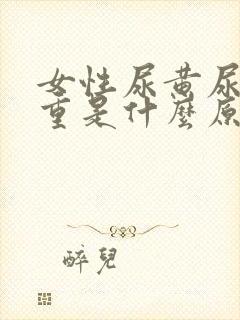 女性尿黄尿
重是什麼原
醉兒